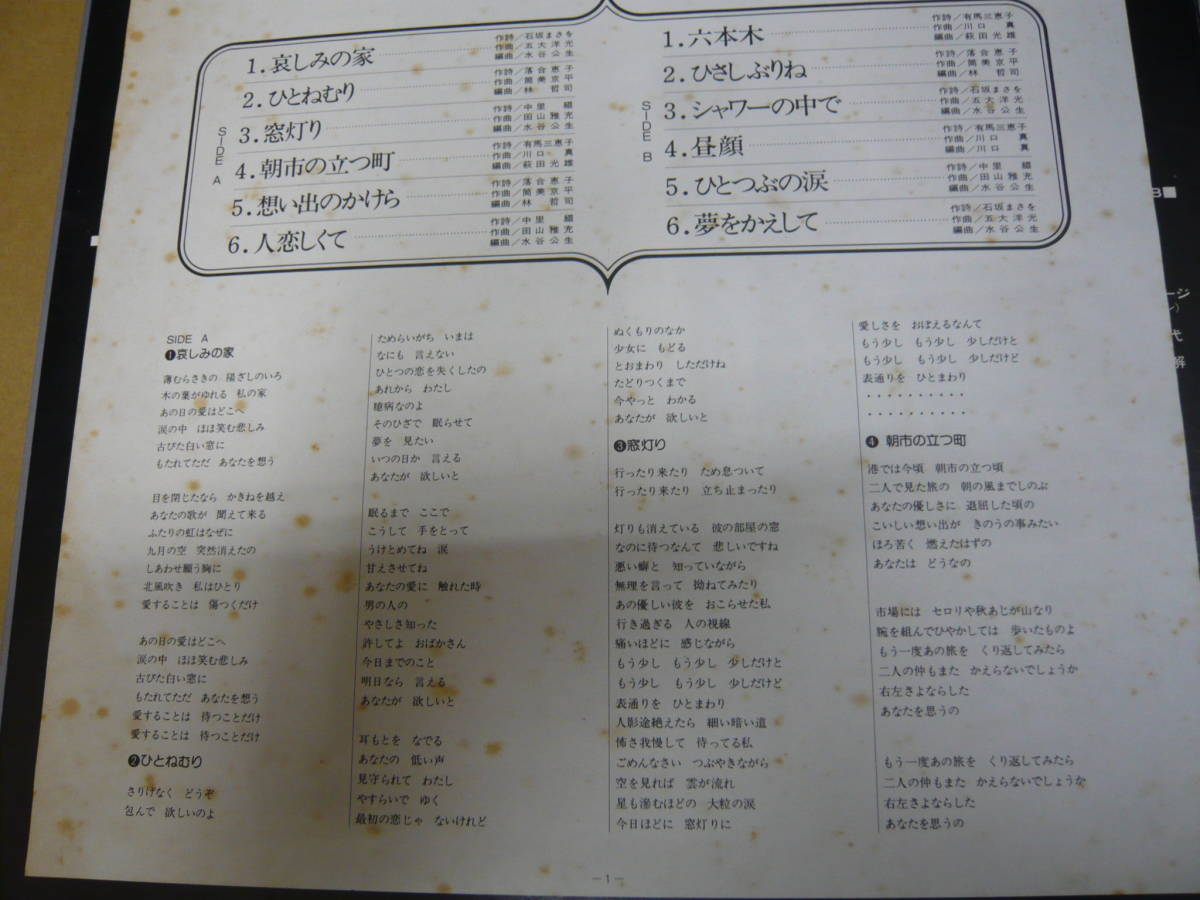 SIDE A
1.哀しみの家
作詩／石坂まさを
作曲／五大洋光
編曲／水谷公生
2.ひとねむり
作詩／落合恵子
作曲／筒美京平
編曲／林 哲司
3.窓灯り
作詩／中里 綴
作曲／田山雅充
編曲／水谷公生
4.朝市の立つ町
作詩／有馬三恵子
作曲／川口 真
編曲／萩田光雄
5.想い出のかけら
作詩／落合恵子
作曲／筒美京平
編曲／林 哲司
6.人恋しくて
作詩／中里 綴
作曲／田山雅充
編曲／水谷公生
SIDE B
1.六本木
作詩／有馬三恵子
作曲／川口 真
編曲／萩田光雄
2.ひさしぶりね
作詩／落合恵子
作曲／筒美京平
編曲／林 哲司
3.シャワーの中で
作詩／石坂まさを
作曲／五大洋光
編曲／水谷公生
4.昼顔
作詩／有馬三恵子
作曲／川口 真
編曲／川口 真
5.ひとつぶの涙
作詩／中里 綴
作曲／田山雅充
編曲／水谷公生
6.夢をかえして
作詩／石坂まさを
作曲／五大洋光
編曲／水谷公生
SIDE A
❶哀しみの家
薄むらさきの 陽ざしのいろ
木の葉がゆれる 私の家
あの日の愛はどこへ
涙の中 ほほ笑む悲しみ
古びた白い窓に
もたれてただ あなたを想う
目を閉じたなら かきねを越え
あなたの歌が 聞えて来る
ふたりの虹はなぜに
九月の空 突然消えたの
しあわせ願う胸に
北風吹き 私はひとり
愛することは 傷つくだけ
あの日の愛はどこへ
涙の中 ほほ笑む悲しみ
古びた白い窓に
もたれてただ あなたを想う
愛することは 待つことだけ
愛することは 待つことだけ
❷ひとねむり
さりげなく どうぞ
包んで 欲しいのよ
ためらいがち いまは
なにも 言えない
ひとつの恋を失くしたの
あれから わたし
臆病なのよ
そのひざで 眠らせて
夢を 見たい
いつの日か 言える
あなたが 欲しいと
眠るまで ここで
こうして 手をとって
うけとめてね 涙
甘えさせてね
あなたの愛に 触れた時
男の人の
やさしさ知った
許してよ おばかさん
今日までのこと
明日なら 言える
あなたが 欲しいと
耳もとを なでる
あなたの 低い声
見守られて わたし
やすらいで ゆく
最初の恋じゃ ないけれど
ぬくもりのなか
少女に もどる
とおまわり しただけね
たどりつくまで
今やっと わかる
あなたが 欲しいと
❸窓灯り
行ったり来たり ため息ついて
行ったり来たり 立ち止まったり
灯りも消えている 彼の部屋の窓
なのに待つなんて 悲しいですね
悪い癖と 知っていながら
無理を言って 拗ねてみたり
あの優しい彼を おこらせた私
行き過ぎる 人の視線
痛いほどに 感じながら
もう少し もう少し 少しだけと
もう少し もう少し 少しだけど
表通りを ひとまわり
人影途絶えたら 細い暗い道
怖さ我慢して 待ってる私
ごめんなさい つぶやきながら
空を見れば 雲が流れ
星も滲むほどの 大粒の涙
今日ほどに 窓灯りに
愛しさを おぼえるなんて
もう少し もう少し 少しだけと
もう少し もう少し 少しだけど
表通りを ひとまわり
・・・・・・・・・・
・・・・・・・・・・
❹ 朝市の立つ町
港では今頃 朝市の立つ頃
二人で見た旅の 朝の風までしのぶ
あなたの優しさに 退屈した頃の
こいしい想い出が きのうの事みたい
ほろ苦く 燃えたはずの
あなたは どうなの
市場には セロリや秋あじが山なり
腕を組んでひやかしては 歩いたものよ
もう一度あの旅を くり返してみたら
二人の仲もまた かえらないでしょうか
右左さよならした
あなたを思うの
もう一度あの旅を くり返してみたら
二人の仲もまた かえらないでしょうか
右左さよならした
あなたを思うの
−1−